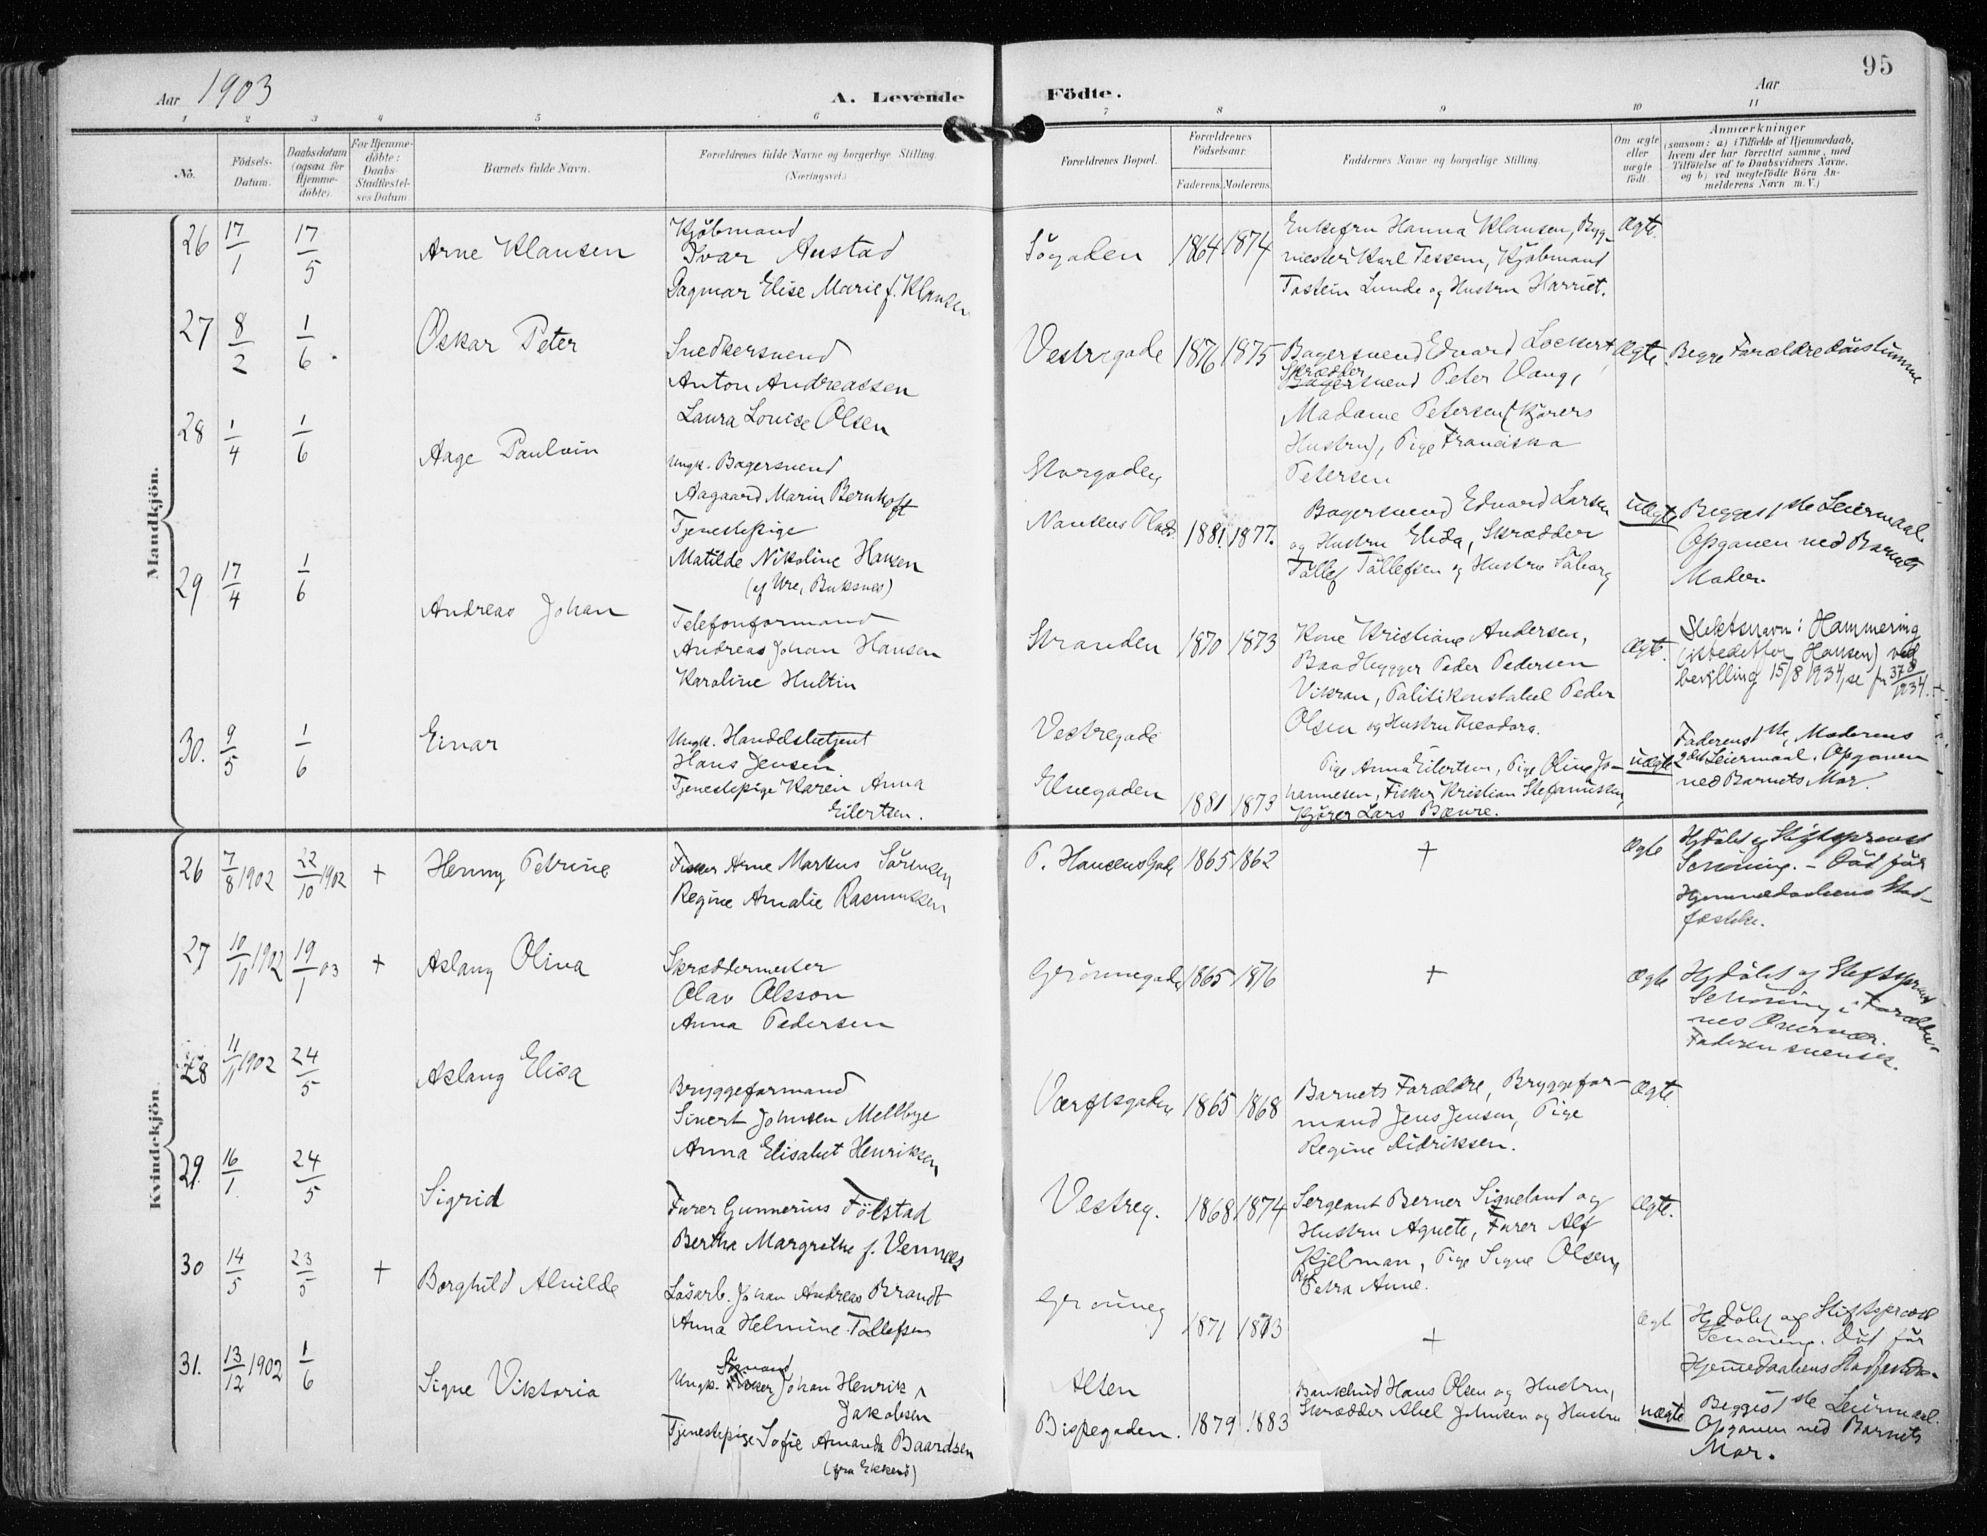 95
Aar 1903
A. Levende
Födte.
Aar
1 2 3 4 5 6 7 8 9 10 11
No.
Födsels-
Datum.
Daabsdatum
(ogsaa for
Hjemme-
döbte).
For Hjemme-
döbte:
Daabs-
Stadfæstel-
ses Datum
Barnets fulde Navn.
Forældrenes fulde Navne og borgerlige Stilling.
(Næringsvei.)
Forældrenes Bopæl.
Forældrenes
Födselsaar.
Faderens. Moderens.
Faddernes Navne og borgerlige Stilling.
Om ægte
eller
uægte
födt.
Anmærkninger
(saasom: a) i Tilfælde af Hjemmedaab,
hvem der har forrettet samme, med
Tilföielse af to Daabsvidners Navne,
og b) ved uægtefödte Börn An-
melderens Navn m. V.)
Mandkjön.
26 17/1 17/5 Arne Klausen
Kjøbmand
Ivar Austad
Dagmar Elise Marie f. Klausen
Søgaden 1864 1874
Enkefru Hanna Klausen, Byg-
mester Karl Tessem, Kjøbmand
Tostein Lunde og Hustru Harriet.
Ægte.
27 8/2 1/6 Oskar Peter
Snedkersvend
Anton Andreassen
Laura Louise Olsen
Vestregade 1876 1875
Bagersvend Edvard Lockert,
Skrædder
Bagersvend Peter Vang,
Madame Petersen (Kjørers
Hustru), Pige Franciska
Petersen
Ægte. Begge Forældre døvstumme
28 1/4 1/6 Aage Paulvin
Ungk. Bagersvend
Aagaard Marin Bernhoft
Tjenestepige
Matilde Nikoline Hansen
(af Ure, Buksnes)
Storgaden
Nansens Plads. 1881. 1877.
Bagersvend Edvard Larsen
og Hustru Elida, Skrædder
Tollef Tollefsen og Hustru Solborg
Uægte Begges 1ste Leiermaal.
Opgaven ved Barnets
Moder.
29 17/4 1/6 Andreas Johan
Telefonformand
Andreas Johan Hansen
Karoline Hultin
Stranden 1870 1873
Kone Kristiane Andersen,
Baadbygger Peder Pedersen
Vikran, Politikonstabel Peder
Olsen og Hustru Theodora.
Ægte.
Slektsnavn: Hammering
(istedetfor Hansen) ved
bevilling 15/8 1934, se jr 378/1934.
30. 9/5 1/6 Einar
Ungk. Handelsbetjent
Hans Jensen.
Tjenestepige Karen Anna
Eilertsen.
Vestregade
Elvegaden 1881 1873
Pige Anna Eilertsen, Pige Oline Jo-
hannesen, Fisker Kristian Stefanussen,
Kjører Lars Bævre.
uægte
Faderens 1ste, Moderens
2det Leiermaal. Opgaven
ved Barnets Mor.
Kvindekjön
26 7/8 1902 22/10 1902 + Henny Petrine
Fisker Arne Markus Sørensen
Regine Amalie Rasmussen
P. Hansens Gade 1865 1862 + Ægte
Hj.døbt af Stiftsprovst
Schøning. - Død før
Hjemmedaabens Stad-
fæstelse.
27 10/10 1902 19/1 03 + Aslaug Oliva
Skræddermester
Olav Olsson
Anna Pedersen
Grønnegade 1865 1876 + Ægte
Hj.døbt af Stiftsprovst
Schøning i Forældre-
nes Nærvær.
Faderen svensk.
28 11/11 1902 24/5 Aslaug Elisa
Bryggeformand
Sivert Johnsen Mellbye
Anna Elisabet Henriksen
Værftsgaden 1865 1868
Barnets Forældre, Bryggefor-
mand Jens Jensen, Pige
Regine Didriksen.
Ægte.
29. 16/1. 24/5 Sigrid
Furer Gunnerius Følstad
Bertha Margrethe f. Vennæs
Vestreg. 1868 1874
Sergeant Berner Signeland og
Hustru Agnete, Furer Alf
Kjelman, Pige Signe Olsen,
Petra Anne.
Ægte.
30 14/5 23/5 + Borghild Alvilde
Løsarb. Johan Andreas Brandt
Anna Helmine Tollefsen
Grønneg 1871 1873 + Ægt
Hj.døbt af Stiftsprovst
Schøning. Død før
Hjemmedaabens Stadfæstelse.
31. 13/12 1902 1/6 Signe Viktoria
Sømand
Ungk. Fisker Johan Henrik
Jakobsen
Tjenestepige Sofie Amanda Baardsen
(fra Ekkerø)
Alten
Bispegaden. 1879. 1883
Banebud Hans Olsen og Hustru,
Skrædder Abel Johnsen og Hustru
uægte
Begges 1ste Leiermaal.
Opgaven ved Barnets
Mor.